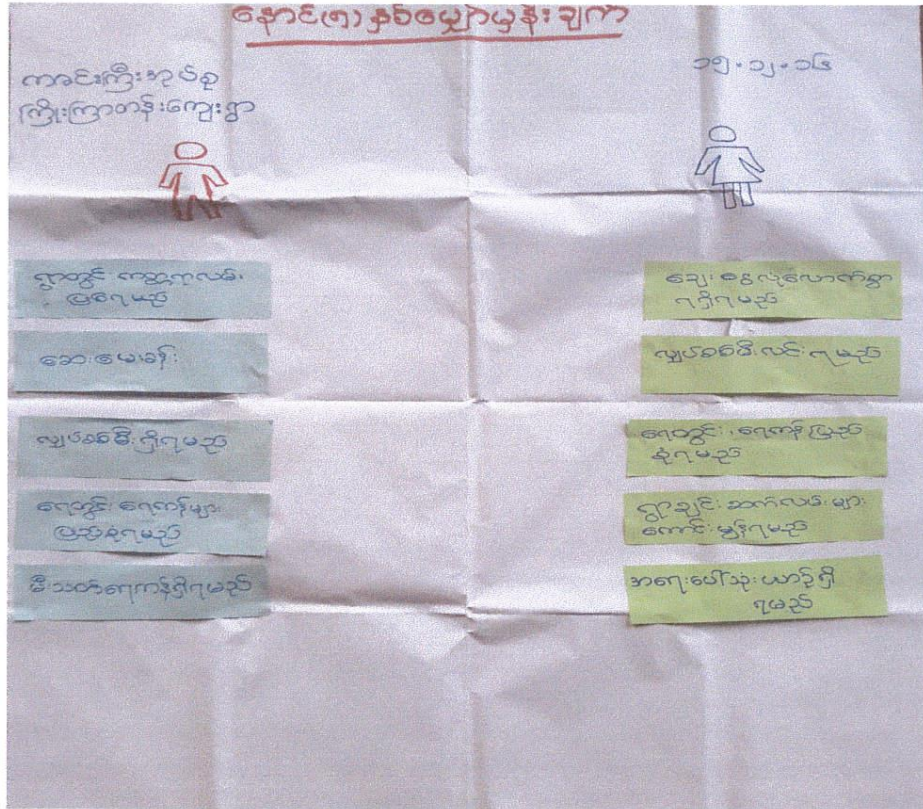 နောင်(၅)နှစ်မျှော်မှန်းချက်
ကအင်းကြီးအုပ်စု
ကြိုးကြာတန်းကျေးရွာ
၁၅.၁၂.၁၆
ရွာတွင်း ကတ္တရာလမ်း
ပြုရမည်
ဆေးပေးခန်း
လျှပ်စစ်မီးရှိရမည်
ရေတွင်းရေကန်များ
ပြည့်စုံရမည်
မီးသတ်ရေကန်ရှိရမည်
ချေးငွေလုံလောက်စွာ
ရရှိရမည်
လျှပ်စစ်မီးလင်းရမည်
ရေတွင်း၊ရေကန်ပြည့်
စုံရမည်
ရွာချင်းဆက်လမ်းများ
ကောင်းမွန်ရမည်
အရေးပေါ်သုံးယာဉ်ရှိ
ရမည်